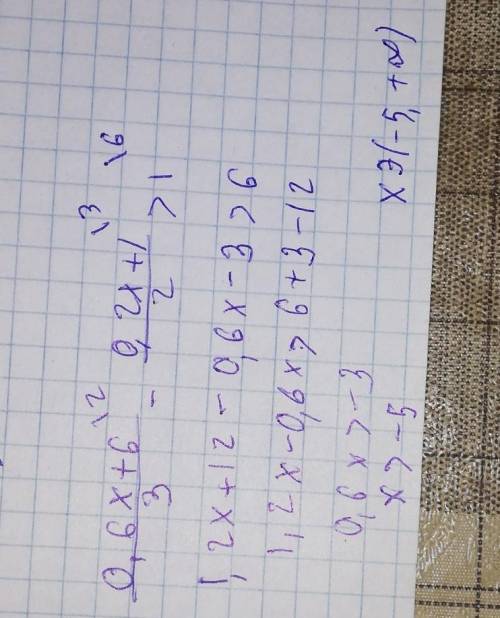 (0,6x+6)/3 \2 - (0,2x+1)/2 \3 > 1 \6
1,2x+12-0,6x-3>6
1,2x-0,6x>6+3-12
0,6x>-3
x>-5 x∋(-5,+∞)